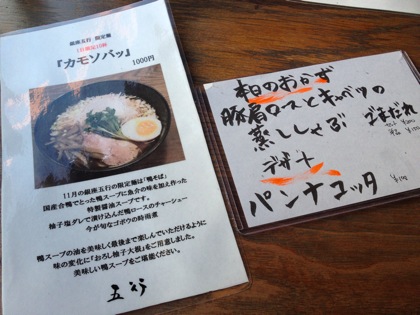 銀座五行 限定麺
1日限定10杯
『カモソバッ』
1000円
11月の銀座五行の限定麺は「鴨そば」
国産合鴨でとった鴨スープに魚介の味を加え作った
特製醤油スープです。
柚子塩ダレで漬け込んだ鴨ロースのチャーシュー
今が旬なゴボウの時雨煮
鴨スープの油を美味しく最後まで楽しんでいただけるように
味の変化に「おろし柚子大根」をご用意しました。
美味しい鴨スープをご堪能ください。
五行
本日のおかず
豚肩ロースとキャベツの
蒸ししゃぶ ごまだれ
デザート
パンナコッタ